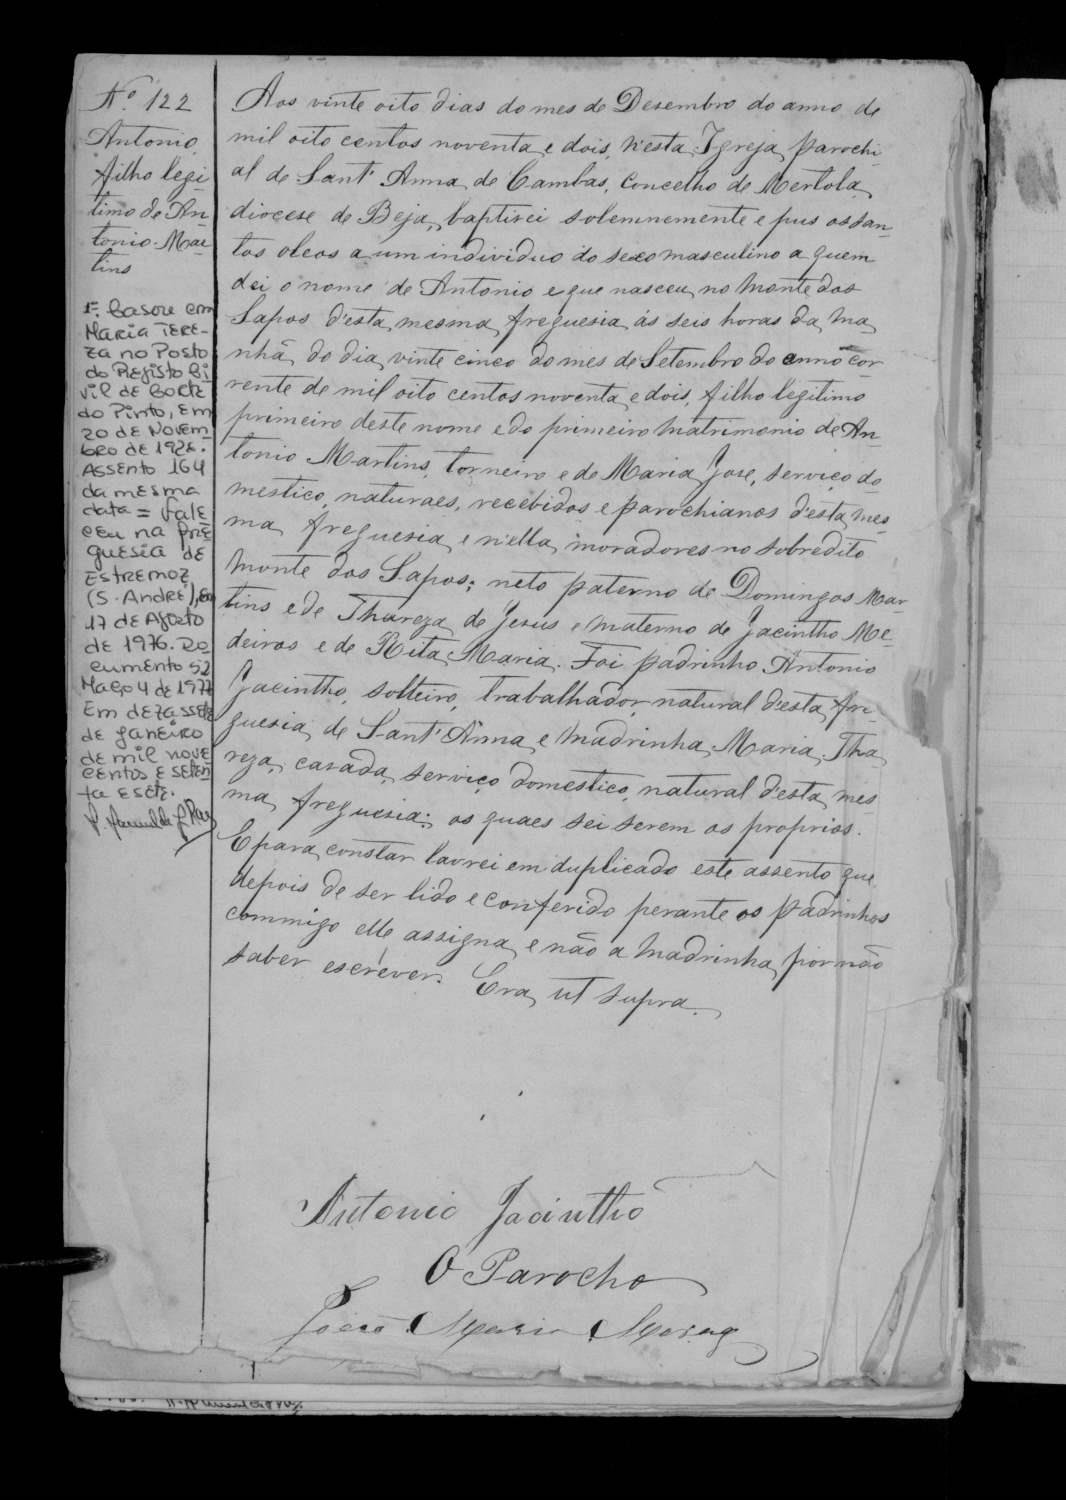 Nº 122
Antonio,
filho legi-
timo de An-
tonio Mar-
tins
F. Casou com
Maria Tere-
za no Posto
do Registo Ci-
vil de Corte
do Pinto, em
20 de Novem-
bro de 192
Assento 164
da mesma
data = Fale-
ceu na fre-
guesia de
Estremoz
(S. André), em
17 de Agosto
de 1976. Do-
cumento 52
Maço 4 de 1977
Em dezassete
de janeiro
de mil nove
centos e seten-
ta e sete.
Aos vinte oito dias do mes de Desembro do anno de
mil oito centos noventa e dois, n'esta Igreja parochi-
al de Sant' Anna de Cambas, Concelho de Mertola,
diocese de Beja, baptisei solemnemente e pus os san-
tos oleos a um individuo do sexo masculino a quem
dei o nome de Antonio e que nasceu no Monte dos
Sapos d'esta mesma freguesia ás seis horas da ma
nhã do dia vinte cinco do mes de Setembro do anno cor-
rente de mil oito centos noventa e dois, filho legitimo
primeiro deste nome e do primeiro matrimonio de An-
tonio Martins, torneiro e de Maria Jose, serviço do
mestico, naturaes, recebidos e parochianos d'esta mes
ma freguesia e n'ella moradores no sobredito
Monte dos Sapos; neto paterno de Domingos Mar-
tins e de Thareza de Jesus e materno de Jacintho Me-
deiros e de Rita Maria. Foi padrinho Antonio
Jacintho, solteiro, trabalhador, natural d'esta fre-
guesia de Sant' Anna e Madrinha Maria Tha
reza, casada, serviço domestico, natural d'esta mes
ma freguesia; os quaes sei serem os proprios.
E para constar lavrei em duplicado este assento que
depois de ser lido e conferido perante os padrinhos
commigo elle assigna e não a Madrinha por não
saber escrever. Era ut supra.
Antonio Jacintho
O Parocho
João Maria